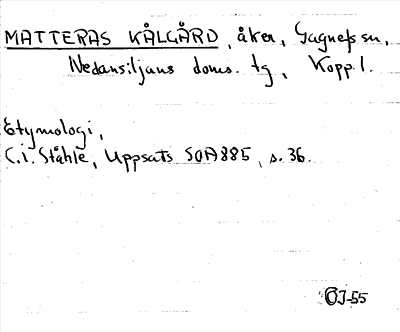 MATTERAS KÅLGÅRD, åker, Gagnefs sn,
Nedansiljans doms. tg, Kopp.l.
Etymologi,
C.I. Ståhle, Uppsats SOA 885, s. 36.
ÖJ-55